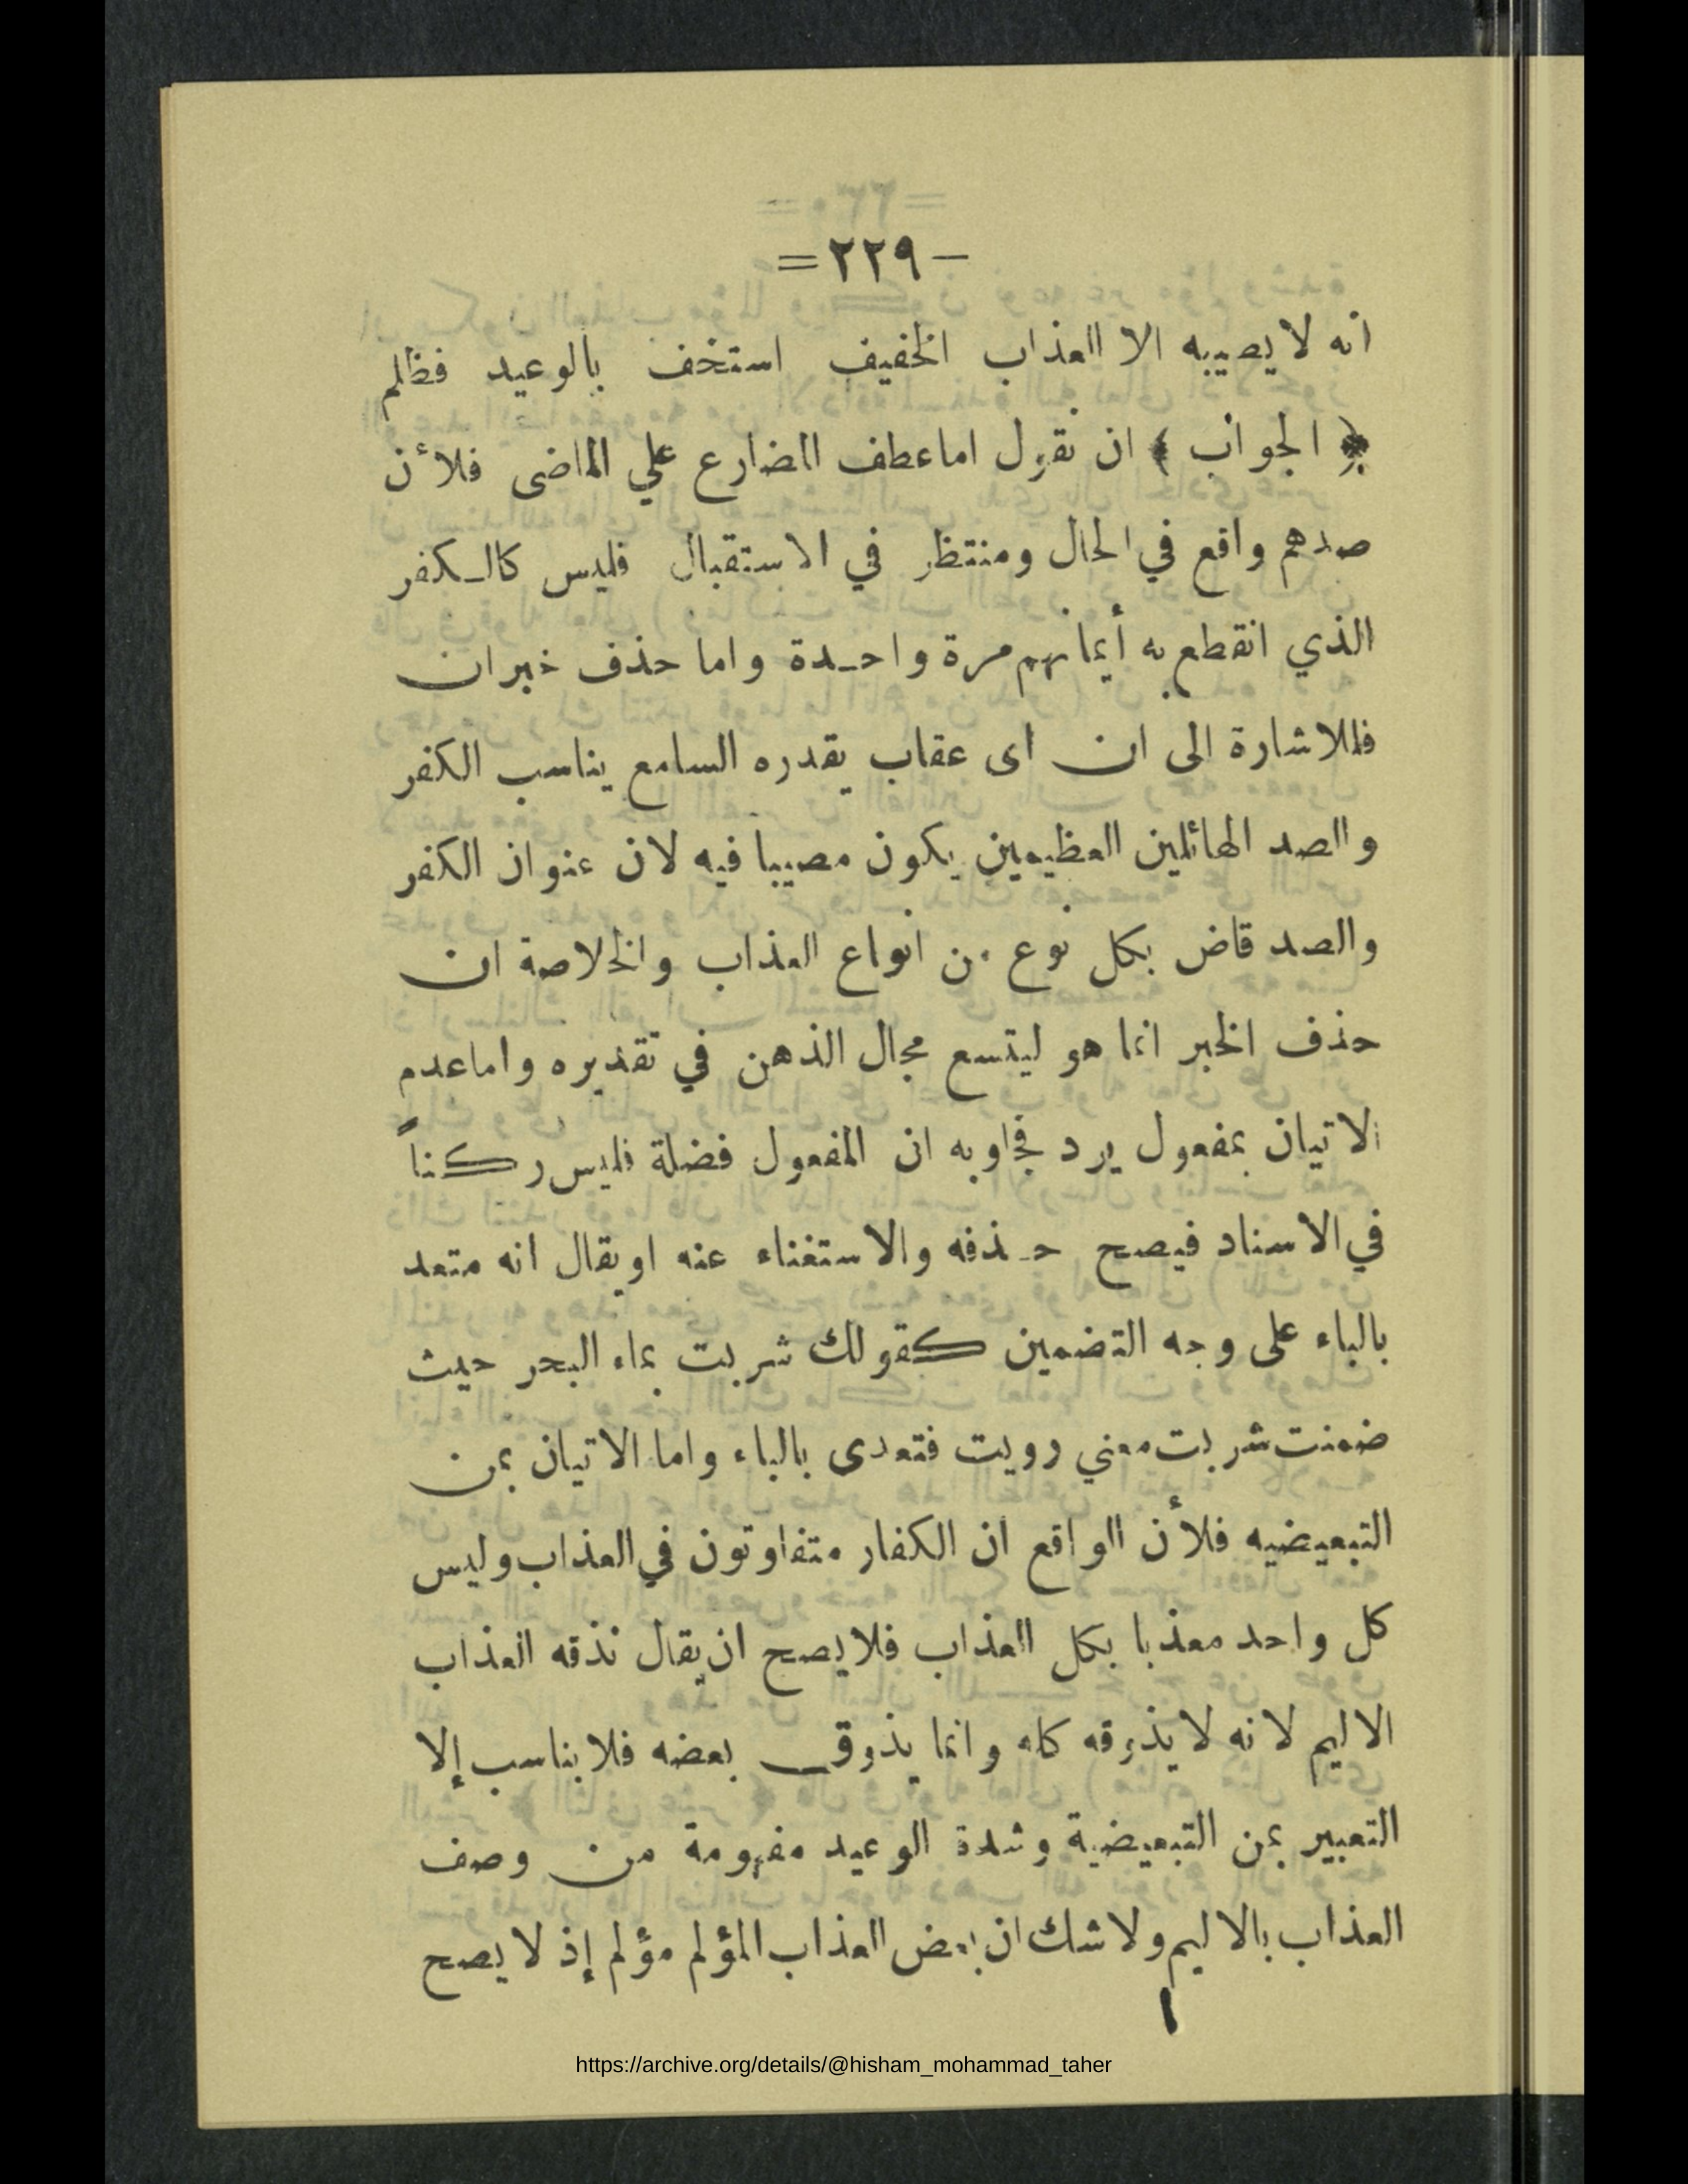 – ٢٢٩ =
انه لا يصيبه الا العذاب الخفيف استخف بالوعيد فظلم
﴿ الجواب ﴾ ان نقول اما عطف المضارع علي الماضى فلأن
صدهم واقع في الحال ومنتظر في الاستقبال فليس كالكفر
الذي انقطع به أيمانهم مرة واحدة واما حذف خبر ان
فللاشارة الى ان اى عقاب يقدره السامع يناسب الكفر
والصد الهائلين العظيمين يكون مصيبا فيه لان عنوان الكفر
والصد قاض بكل نوع من انواع العذاب والخلاصة ان
حذف الخبر انما هو ليتسع مجال الذهن في تقديره واما عدم
الاتيان بمفعول يرد فجوابه ان المفعول فضلة فليس ركناً
في الاسناد فيصح حذفه والاستغناء عنه او يقال انه متعد
بالباء على وجه التضمين كقولك شربت بماء البحر حيث
ضمنت شربت معني رويت فتعدى بالباء واما الاتيان بمن
التبعيضيه فلأن الواقع ان الكفار متفاوتون في العذاب وليس
كل واحد معذبا بكل العذاب فلا يصح ان يقال نذقه العذاب
الاليم لانه لا يذوقه كله وانما يذوق بعضه فلا يناسب إلا
التعبير بمن التبعيضية وشدة الوعيد مفهومة من وصف
العذاب بالاليم ولا شك ان بعض العذاب المؤلم مؤلم إذ لا يصح
https://archive.org/details/@hisham_mohammad_taher